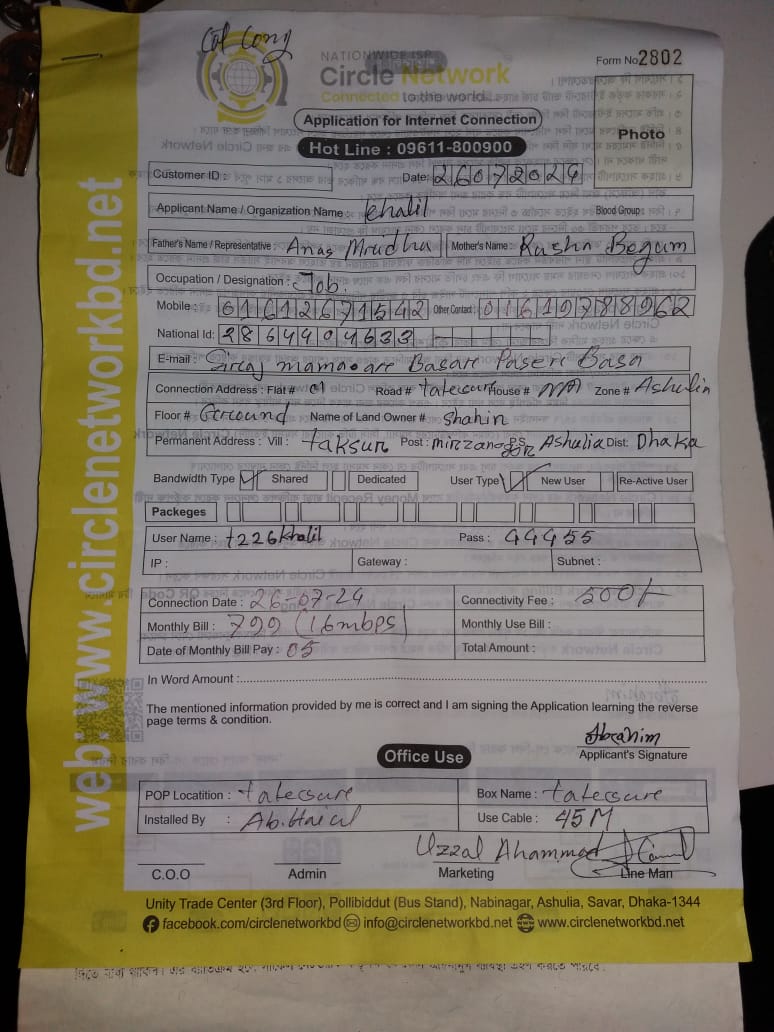 Cat Cong
NATIONWIDE ISP
Circle Network
Connected to the world
Form No 2802
Application for Internet Connection
Photo
Hot Line : 09611-800900
Customer ID :
Date: 26072024
Applicant Name / Organization Name : khalil
Blood Group :
Father's Name / Representative : Anas Mridha
Mother's Name : Rushn Begum
Occupation / Designation : Job.
Mobile : 01612671542
Other Contact : 01619788962
National Id: 2864404633
E-mail : Basar Paser Basa
Connection Address : Flat # Road # tatecsure House # N/A Zone # Ashulin
Floor # Ground Name of Land Owner # Shahin
Permanent Address : Vill : taksur Post : mirzanogor PS Ashulia Dist: Dhaka
Bandwidth Type Shared Dedicated User Type New User Re-Active User
Packeges
User Name : t226khalil Pass : 44455
IP : Gateway : Subnet :
Connection Date : 26-07-24 Connectivity Fee : 500/-
Monthly Bill : 799 (16mbps) Monthly Use Bill :
Date of Monthly Bill Pay : 05 Total Amount :
In Word Amount :
The mentioned information provided by me is correct and I am signing the Application learning the reverse
page terms & condition.
Abrahim
Applicant's Signature
Office Use
POP Locatition : tatecsure Box Name : tatecsure
Installed By : Use Cable : 45M
Uzzal Ahammod
C.O.O Admin Marketing Line Man
Unity Trade Center (3rd Floor), Pollibiddut (Bus Stand), Nabinagar, Ashulia, Savar, Dhaka-1344
facebook.com/circlenetworkbd info@circlenetworkbd.net www.circlenetworkbd.net
web: www.circlenetworkbd.net